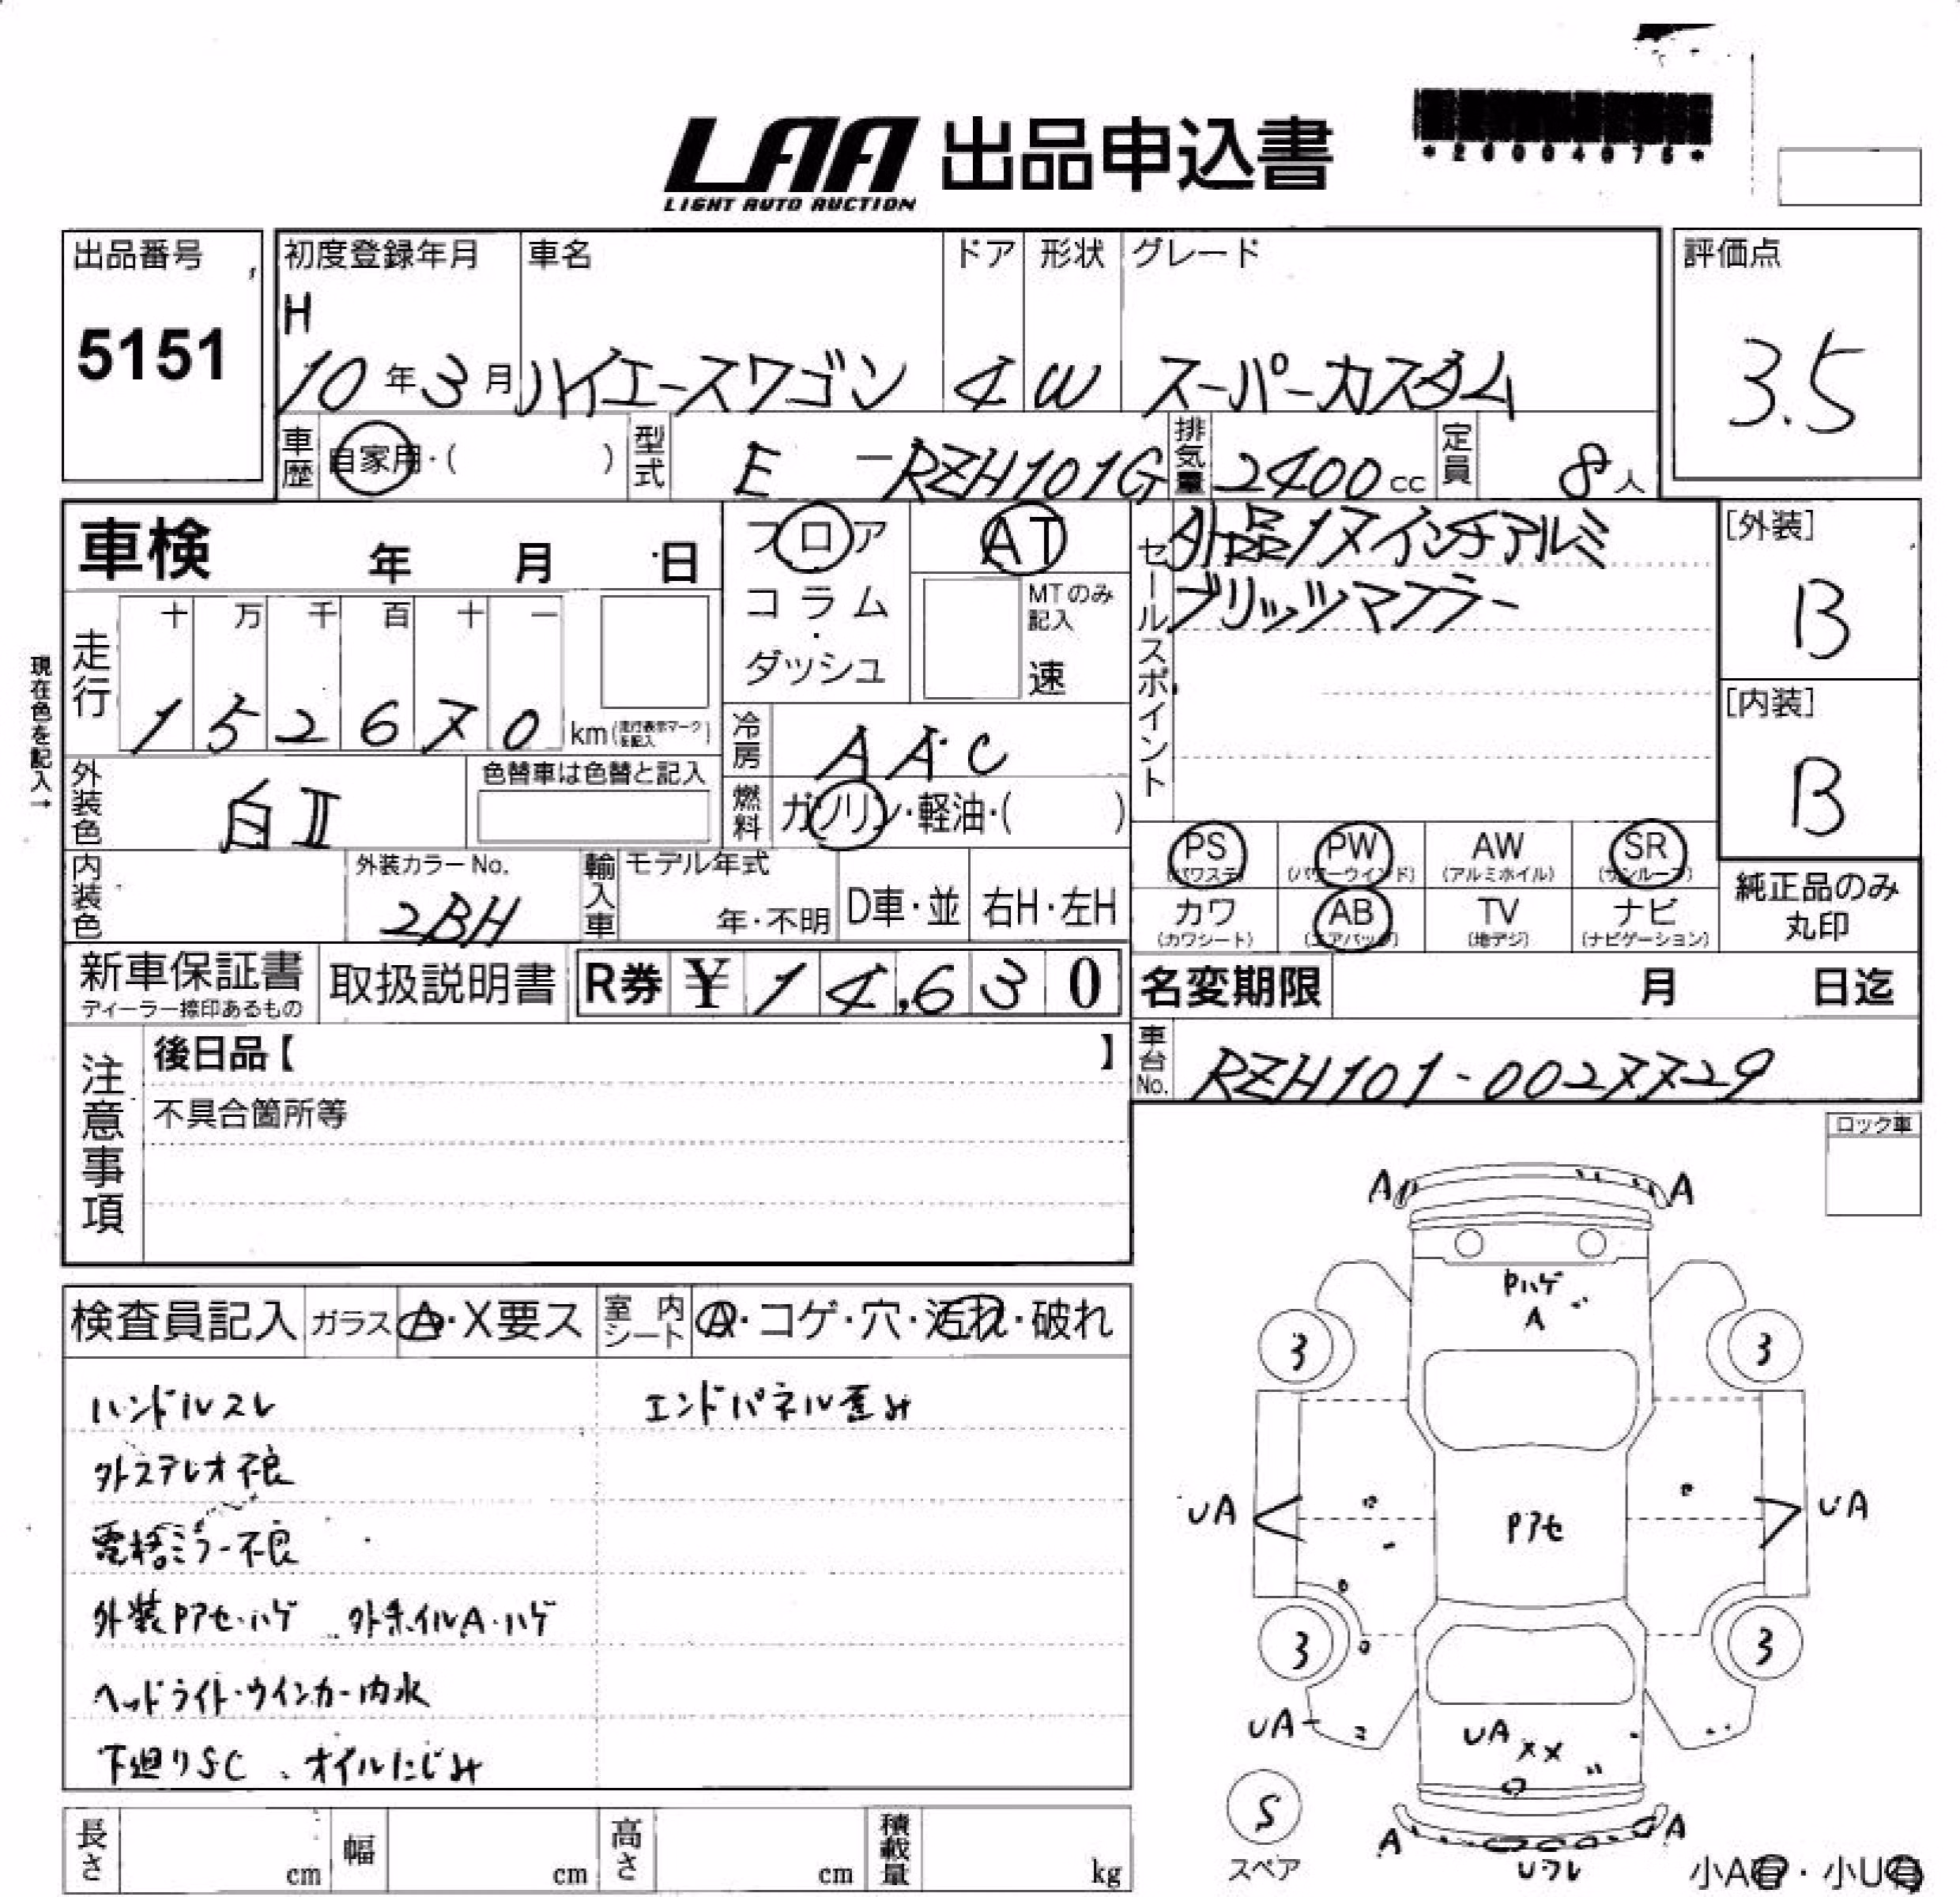 LAA 出品申込書
LIGHT AUTO AUCTION
*26004075*
出品番号
5151
初度登録年月
H
10年3月
車名
ハイエースワゴン
ドア
4
形状
W
グレード
スーパーカスタム
評価点
3.5
車歴 自家用・( )
型式 E-RZH101G
排気量 2400cc
定員 8人
車検 年 月 日
フロア
コラム
・
ダッシュ
AT
MTのみ記入
速
セールスポイント
外品17インチアルミ
ブリッツマフラー
[外装]
B
[内装]
B
現在色を記入→
走行
十 万 千 百 十 一
1 5 2 6 7 0 km(走行表示マークを記入)
冷房 AAC
燃料 ガソリン・軽油・( )
外装色 白II
色替車は色替と記入
内装色
外装カラーNo.
2BH
輸入車 モデル年式
年・不明
D車・並
右H・左H
PS
(パワステ)
PW
(パワーウインド)
AW
(アルミホイル)
SR
(サンルーフ)
カワ
(カワシート)
AB
(エアバッグ)
TV
(地デジ)
ナビ
(ナビゲーション)
純正品のみ
丸印
新車保証書
ディーラー捺印あるもの
取扱説明書
R券 ¥14,630
名変期限 月 日迄
車台No. RZH101-0027729
注意事項
後日品【 】
不具合箇所等
ロック車
検査員記入
ガラス A・X要ス
室内シート A・コゲ・穴・汚れ・破れ
ハンドルスレ
エンドパネル歪み
外ステレオ不良
電格ミラー不良
外装Pアセ・ハゲ 外ホイルA・ハゲ
ヘッドライト・ウインカー内水
下廻りSC、オイルにじみ
A A
Pハゲ
A
3 3
UA UA
Pアセ
3 3
UA
UA
XX
S
スペア
A A
Uフレ
小A有・小U有
長さ cm
幅 cm
高さ cm
積載量 kg